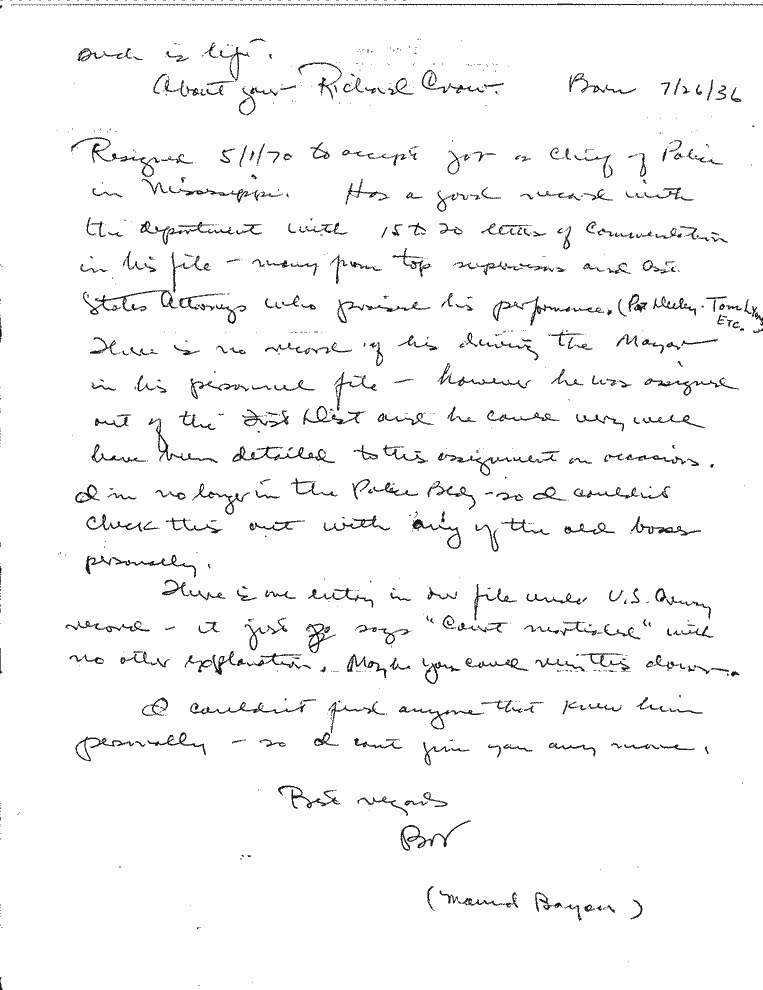 Such is life.
About your Richard Crow. Born 7/26/36
Resigned 5/1/70 to accept job as Chief of Police
in Mississippi. Has a good record with
the department with 15 to 20 letters of Commendation
in his file - many from top supervisors and Asst.
States Attorneys who praised his performance. (Pat Tom
ETC.
There is no record of his driving the Mayor
in his personnel file - however he was assigned
out of the Dist and he could very well
have been detailed to this assignment on occasions.
I'm no longer in the Police Bldg - so I couldn't
check this out with any of the old bosses
personally.
There is one entry in our file under U.S. Army
record - it just says "Court martialed" with
no other explanation. Maybe you could run this down.
I couldn't find anyone that knew him
personally - so I cant give you any more.
Best regards
Bob